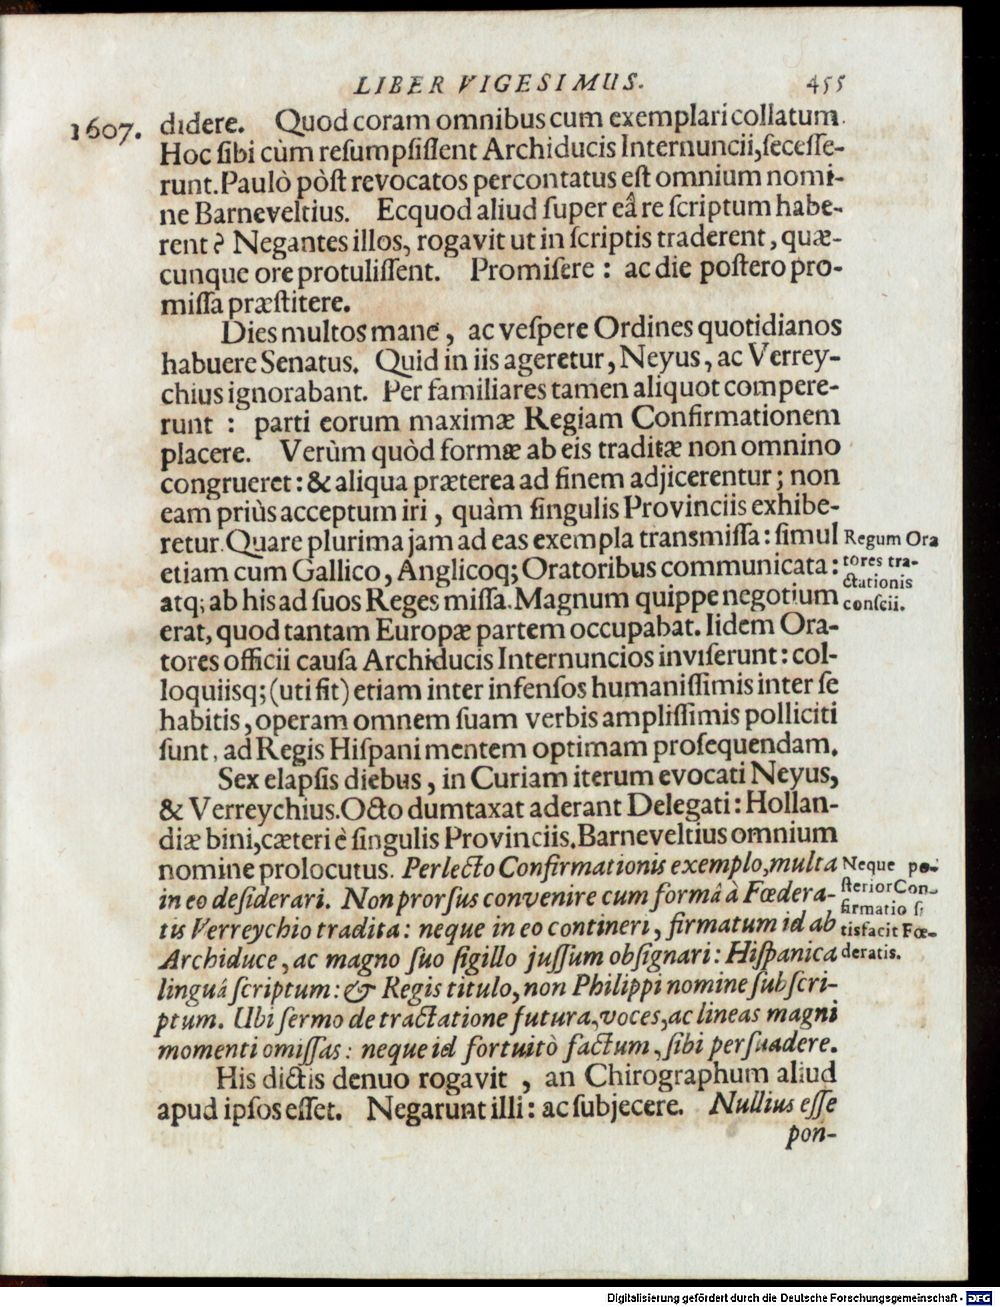 LIBER VIGESIMUS. 455
1607. didere. Quod coram omnibus cum exemplari collatum.
Hoc ſibi cùm reſumpſiſſent Archiducis Internuncii, ſeceſſe-
runt. Paulò pòſt revocatos percontatus eſt omnium nomi-
ne Barneveltius. Ecquod aliud ſuper eâ re ſcriptum habe-
rent? Negantes illos, rogavit ut in ſcriptis traderent, quæ-
cunque ore protuliſſent. Promiſere: ac die poſtero pro-
miſſa præſtitere.
Dies multos mane, ac veſpere Ordines quotidianos
habuere Senatus. Quid in iis ageretur, Neyus, ac Verrey-
chius ignorabant. Per familiares tamen aliquot compere-
runt : parti eorum maximæ Regiam Confirmationem
placere. Verùm quòd formæ ab eis traditæ non omnino
congrueret: & aliqua præterea ad finem adjicerentur; non
eam priùs acceptum iri, quàm ſingulis Provinciis exhibe-
retur. Quare plurima jam ad eas exempla transmiſſa: ſimul
etiam cum Gallico, Anglicoq; Oratoribus communicata:
atq; ab his ad ſuos Reges miſſa. Magnum quippe negotium
erat, quod tantam Europæ partem occupabat. Iidem Ora-
tores officii cauſa Archiducis Internuncios inviſerunt: col-
loquiisq; (uti fit) etiam inter infenſos humaniſſimis inter ſe
habitis, operam omnem ſuam verbis ampliſſimis polliciti
ſunt, ad Regis Hiſpani mentem optimam proſequendam.
Regum Ora
tores tra-
ctationis
conſcii.
Sex elapſis diebus, in Curiam iterum evocati Neyus,
& Verreychius. Octo dumtaxat aderant Delegati: Hollan-
diæ bini, cæteri è ſingulis Provinciis. Barneveltius omnium
nomine prolocutus. Perlecto Confirmationis exemplo, multa
in eo deſiderari. Non prorſus convenire cum formâ à Fœdera-
tis Verreychio tradita: neque in eo contineri, firmatum id ab
Archiduce, ac magno ſuo ſigillo juſſum obſignari: Hiſpanica
linguâ ſcriptum: & Regis titulo, non Philippi nomine ſubſcri-
ptum. Ubi ſermo de tractatione futura, voces, ac lineas magni
momenti omiſſas: neque id fortuitò factum, ſibi perſuadere.
Neque po-
ſterior Con-
firmatio ſ
tisfacit Fœ-
deratis.
His dictis denuo rogavit, an Chirographum aliud
apud ipſos eſſet. Negarunt illi: ac ſubjecere. Nullius eſſe
pon-
Digitalisierung gefördert durch die Deutsche Forschungsgemeinschaft - DFG